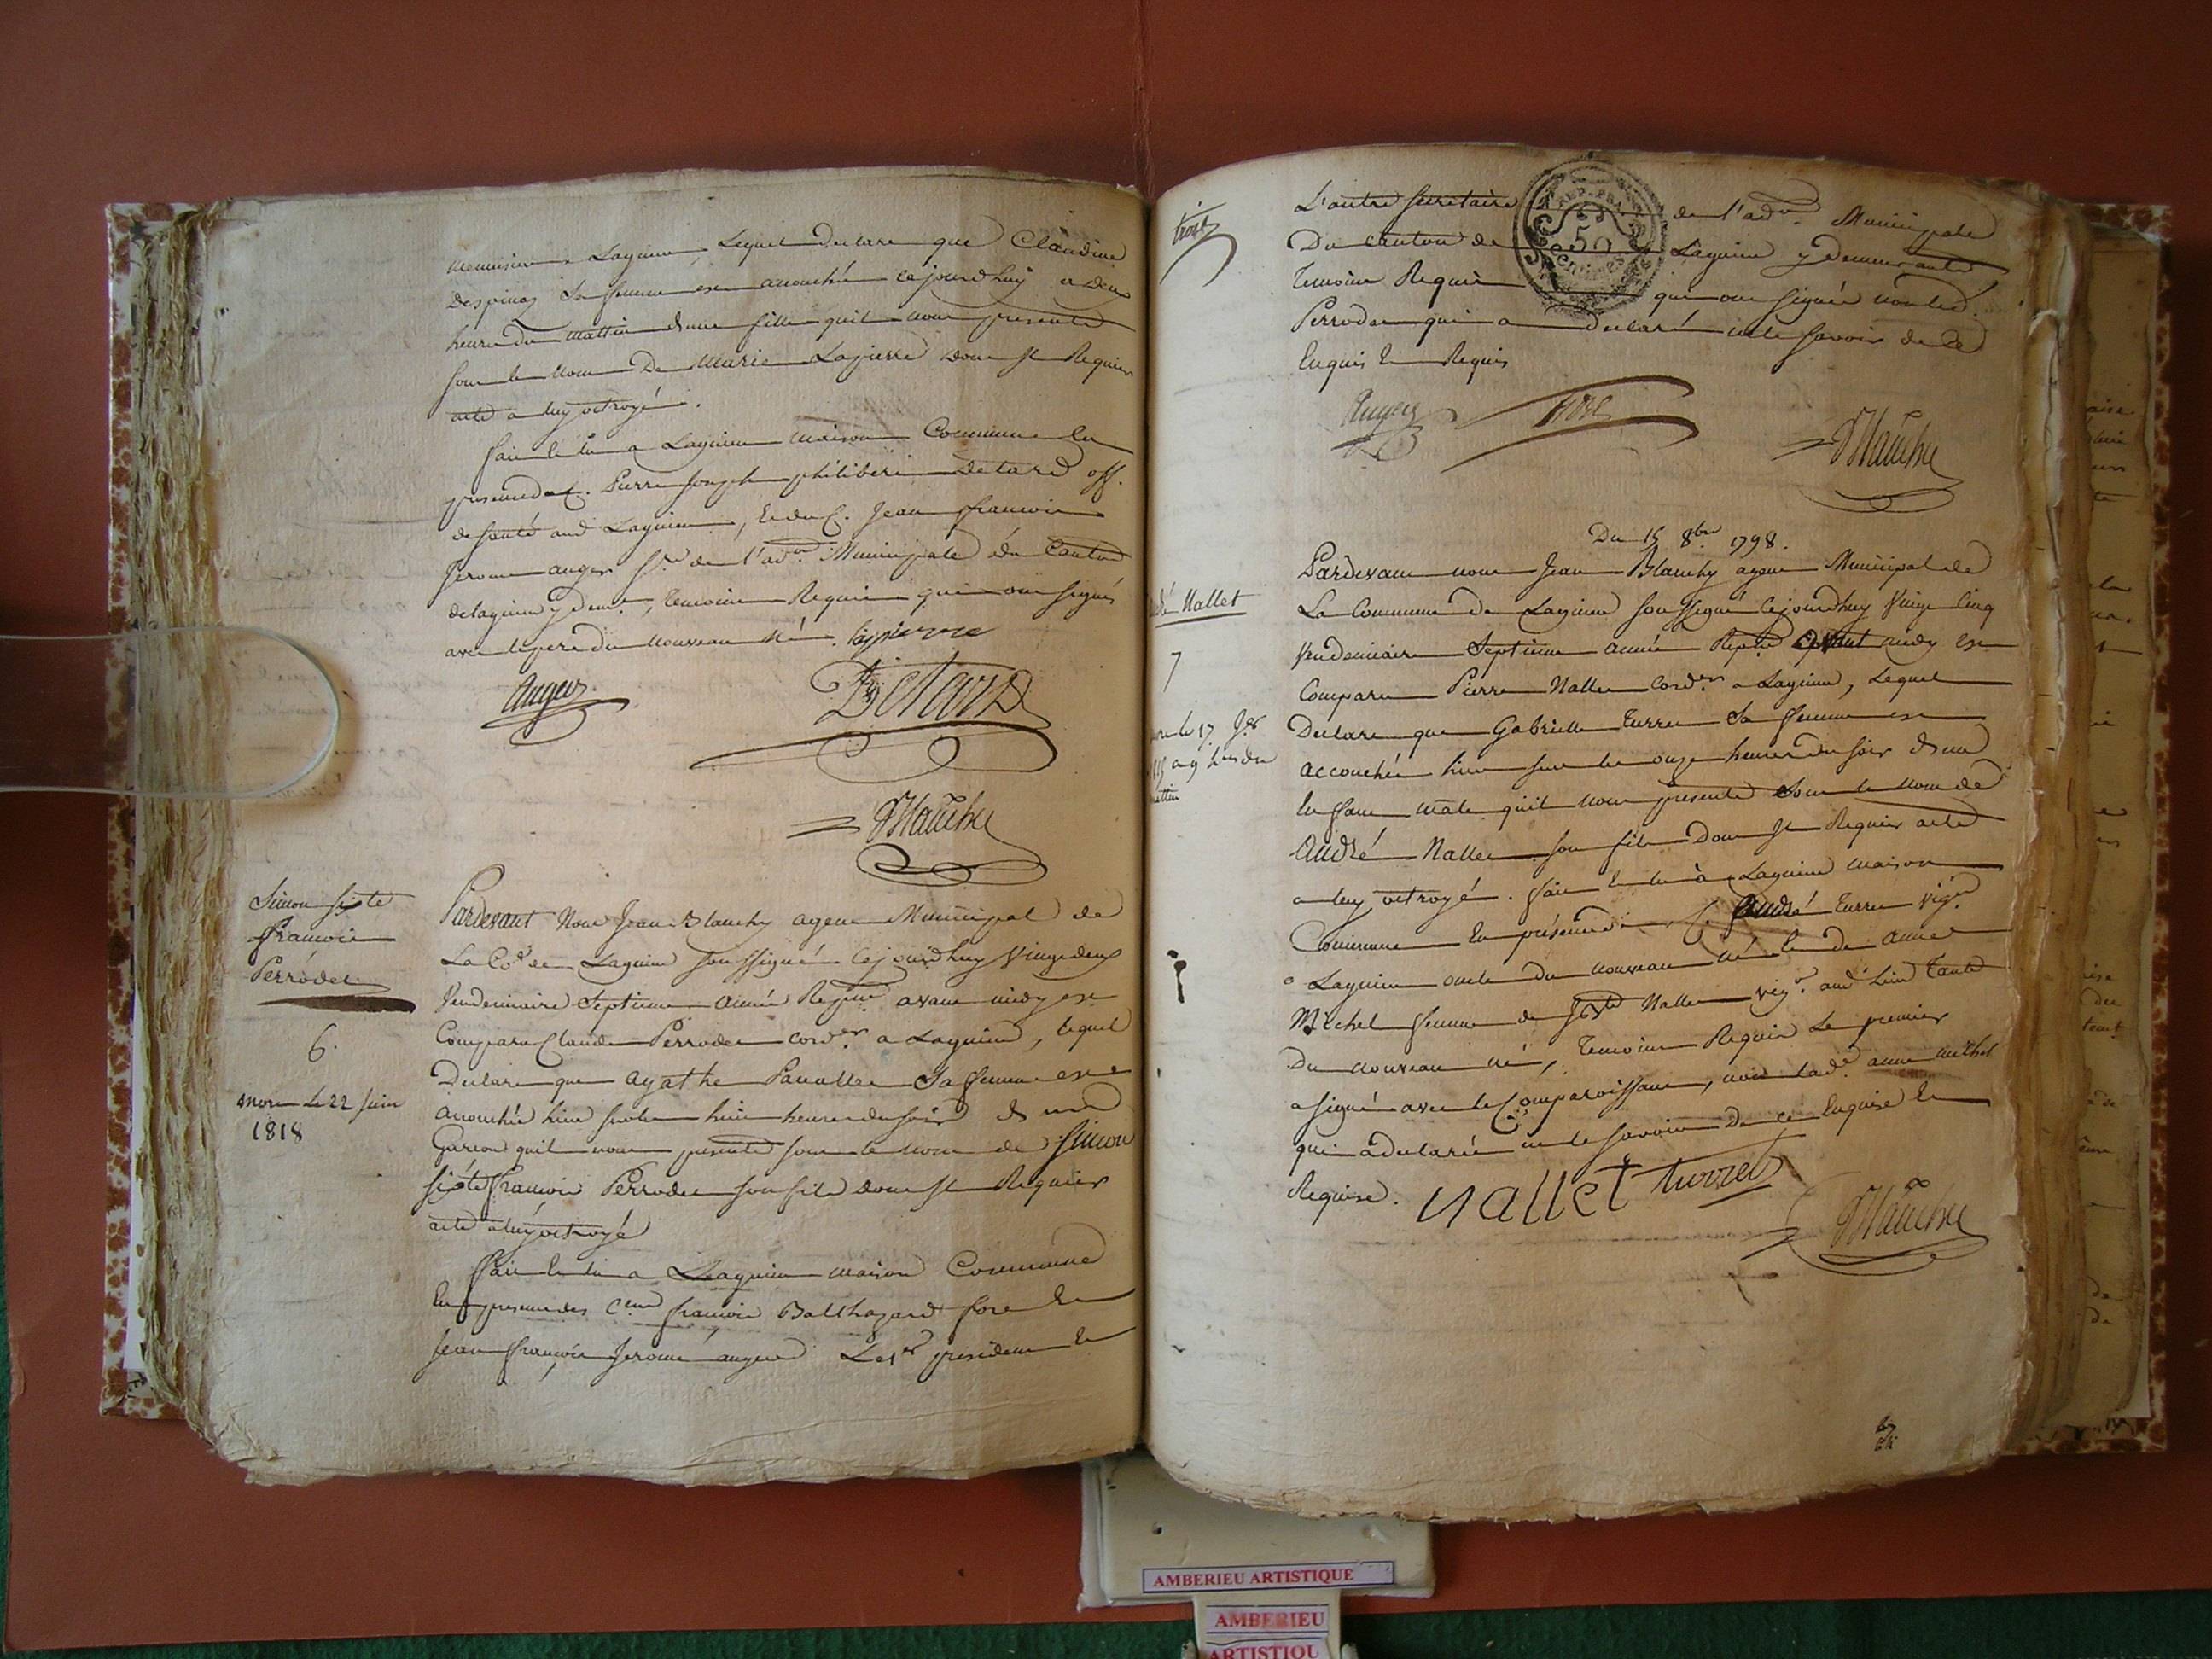 menuisier a Lagnieu, Lequel declare que Claudine
Despinay Sa femme est accouchée cejourdhuy a deux
heures du mattin d'une fille qu'il nous presente
sous le nom De Marie Lapierre dont Il Requier
acte a luy octroyé.
fait et lu a Lagnieu maison Commune En
presence du C. Pierre Joseph philibert Detard off.
de santé aud Lagnieu, et du C. Jean francois
Jerome auger s.re de l'ad.on Municipale du Canton
de lagnieu y dem.t, temoins Requis qui ont signés
avec le pere du nouveau né. lapierre
Auger
Detard
JBlanchy
Simon sixte
francois
Perrodet
6.
mort le 22 Juin
1818
Pardevant Nous Jean Blanchy agent Municipal de
La Co.e de Lagnieu soussigné Cejourdhuy Vingt deux
Vendemiaire Septieme année Rep.ne avant midy est
Comparu Claude Perrodet cord.er a Lagnieu, lequel
Declare que agathe Sa femme est
accouchée hier sur les huit heures du soir d'un
Garcon qu'il nous presente sous le nom de Simon
sixte francois Perrodet son fils dont Il Requier
acte a luy octroyé
fait et lu a Lagnieu maison Commune
En presence des C.ens francois Balthazard et
Jean francois Jerome auger Le 1.er president et
trois
L'autre secretaire de l'ad.on Municipale
Du Canton de Lagnieu y demeurants
temoins Requis qui ont signés non led.
Perrodet qui a declaré ne le savoir de ce
Enquis et Requis
Auger
JBlanchy
REP. FRA.
50
centimes
Du 15 8bre 1798.
dé Nallet
7
Pardevant nous Jean Blanchy agent Municipal de
La Commune de Lagnieu soussigné Cejourdhuy Vingt Cinq
Vendemiaire Septieme année Rep.ne avant midy est
Comparu Pierre Nallet Cord.er a Lagnieu, Lequel
Declare que Gabrielle Turrel Sa femme est
accouchée hier sur les onze heures du soir d'un
Enfant male qu'il nous presente sous le nom de
André Nallet son fils dont Il Requier acte
a luy octroyé. fait et lu à Lagnieu maison
Commune En présence du C. André Turrel vig.n
a Lagnieu oncle du nouveau né et de anne
Michel femme de Nallet vig.n aud Lieu tante
Du nouveau né, temoins Requis Le premier
a signé avec le Comparoissant, non lad.e anne michel
qui a declarée ne le savoir De ce Enquise et
Requise. Nallet turrel
JBlanchy
AMBERIEU ARTISTIQUE
AMBERIEU
ARTISTIQU